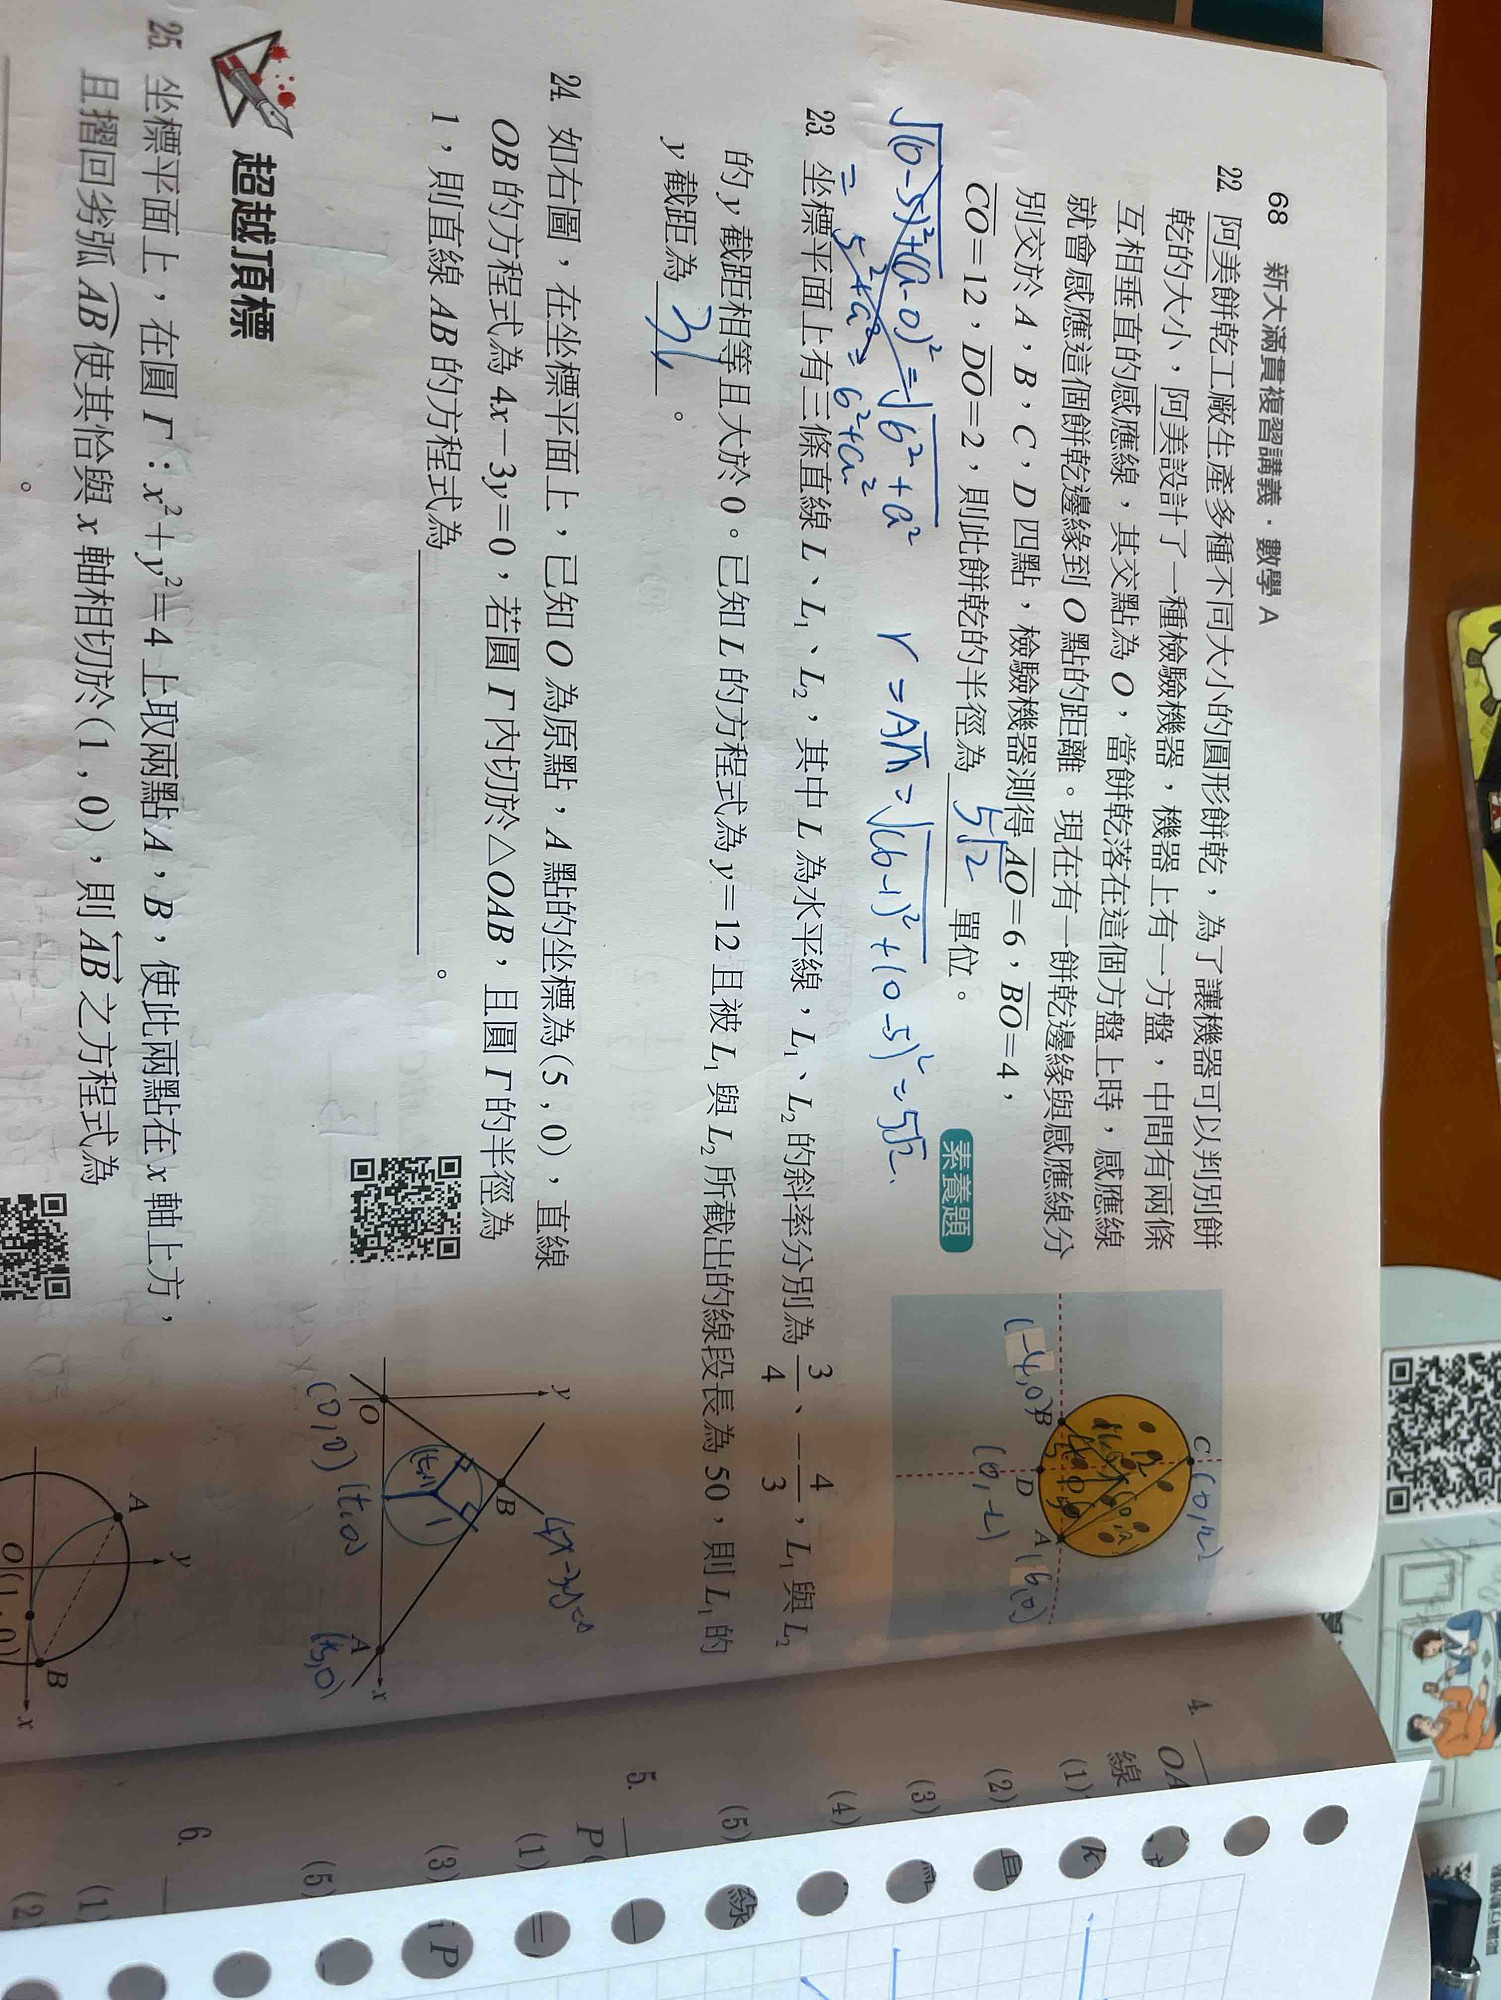 68 新大滿貫複習講義．數學 A
22. 阿美餅乾工廠生產多種不同大小的圓形餅乾，為了讓機器可以判別餅
乾的大小，阿美設計了一種檢驗機器，機器上有一方盤，中間有兩條
互相垂直的感應線，其交點為 O，當餅乾落在這個方盤上時，感應線
就會感應這個餅乾邊緣到 O 點的距離。現在有一餅乾邊緣與感應線分
別交於 A，B，C，D 四點，檢驗機器測得 AO=6，BO=4，
CO=12，DO=2，則此餅乾的半徑為 5√2 單位。
素養題
C (0,12)
B (-4,0)
D (0,-2)
A (6,0)
r=AM=√(6-1)²+(0-5)²=5√2.
23. 坐標平面上有三條直線 L、L₁、L₂，其中 L 為水平線，L₁、L₂ 的斜率分別為 3/4、-4/3，L₁ 與 L₂
的 y 截距相等且大於 0。已知 L 的方程式為 y=12 且被 L₁ 與 L₂ 所截出的線段長為 50，則 L₁ 的
y 截距為 36。
24. 如右圖，在坐標平面上，已知 O 為原點，A 點的坐標為 (5, 0)，直線
OB 的方程式為 4x-3y=0，若圓 Γ 內切於△OAB，且圓 Γ 的半徑為
1，則直線 AB 的方程式為。
y
B
4x-3y=0
(t,1)
1
O
A
x
(0,0) (t,0)
(5,0)
超越頂標
25. 坐標平面上，在圓 Γ：x²+y²=4 上取兩點 A，B，使此兩點在 x 軸上方，
且摺回劣弧 AB 使其恰與 x 軸相切於 (1, 0)，則 AB 之方程式為
。
y
A
B
O
(1, 0)
x
4.
OA
線
(1)
(2)
(3)
(4)
(5)
5.
P(
(1)
(3)
(5)
6.
(1)
(2)